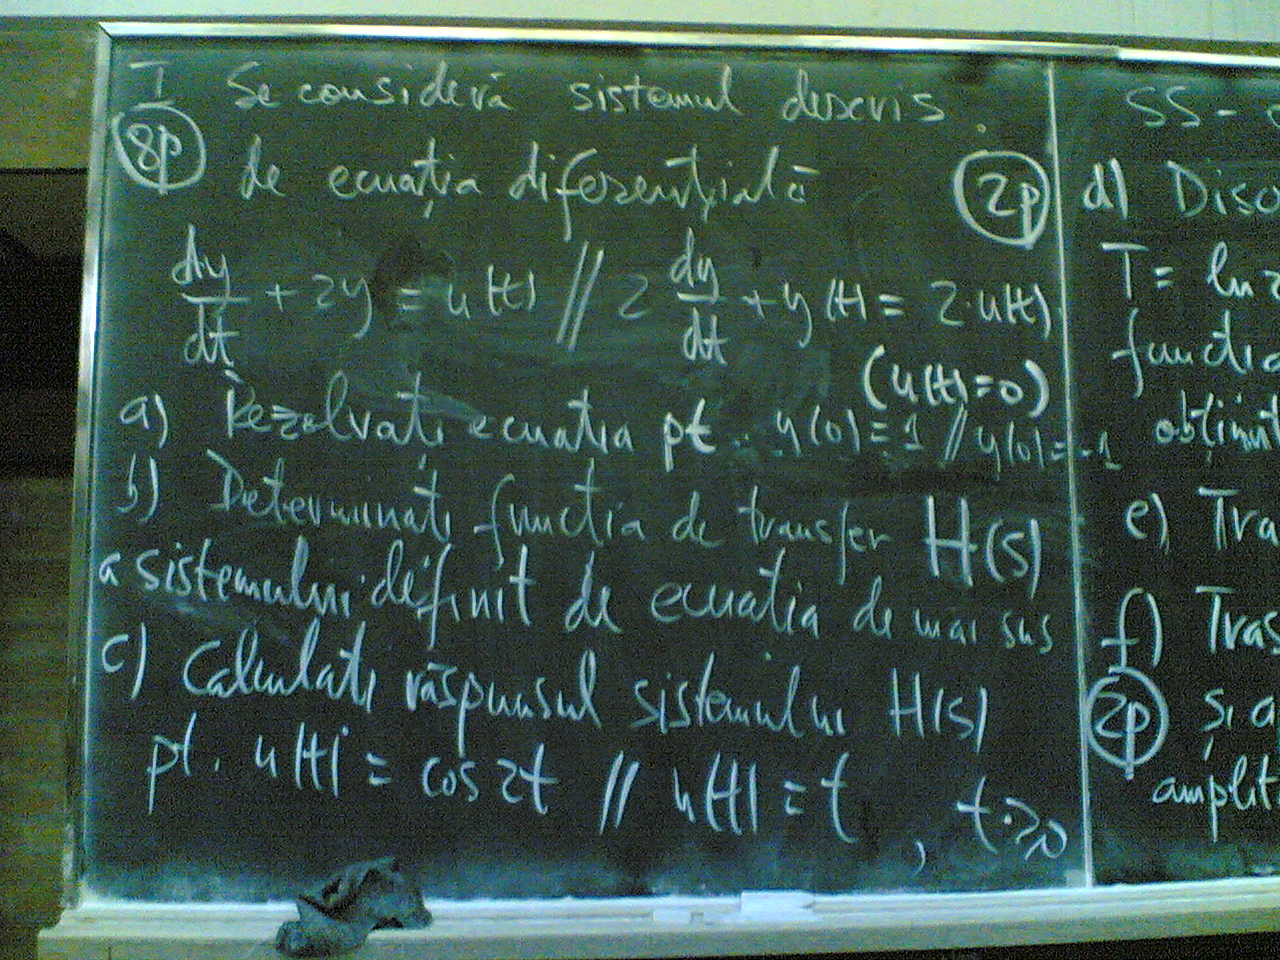 I Se consideră sistemul descris
8p de ecuația diferențială
dy/dt + 2y = u(t) // 2 dy/dt + y(t) = 2·u(t)
(u(t)=0)
a) Rezolvați ecuația pt. y(0)=1 // y(0)=-1
b) Determinați funcția de transfer H(s)
a sistemului definit de ecuația de mai sus
c) Calculați răspunsul sistemului H(s)
pt. u(t) = cos 2t // u(t) = t , t≥0
SS -
2p d) Disc
T = ln
funcți
obținut
e) Tra
f) Tras
2p și a
amplit